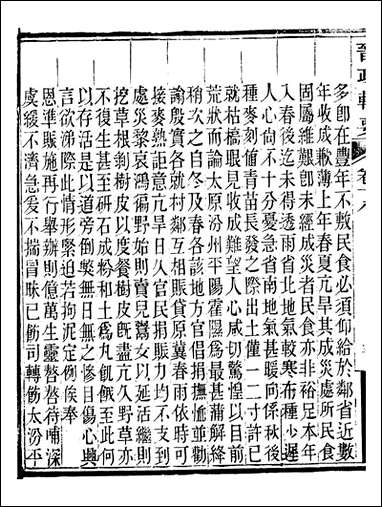 晉政輯要 卷十八
多即在豐年不敷民食必須仰給於鄰省近數
年收成歉薄上年春夏亢旱其成災處所民食
固屬維艱即未經成災者民食亦非裕足本年
入春後迄未得透雨省北地氣較寒布種少遲
人心尚不十分憂急省南地氣甚暖向係秋後
種麥刻值青苗長發之際出土僅一二寸許已
就枯槁眼見收成難望人心咸切驚惶以目前
荒狀而論太原汾州平陽霍隰為最甚蒲解絳
稍次之自冬及春各該地方官倡捐撫恤並勸
諭殷實各就村鄰互相賑貸原冀春雨依時可
接麥熟詎意亢旱日久官民捐賑力均不支到
處災黎哀鴻徧野始則賣兒鬻女以延活繼則
挖草根剝樹皮以度餐樹皮既盡亢久野草亦
不復生甚至研石成粉和土為丸飢餓至此何
以存活是以道旁倒斃無日無之慘目傷心興
言欲涕際此情形緊迫若拘泥定例俟奉
恩準賑施再行舉辦則億萬生靈嗸嗸待哺深
虞緩不濟急爰不揣冒昧已飭司轉飭太汾平